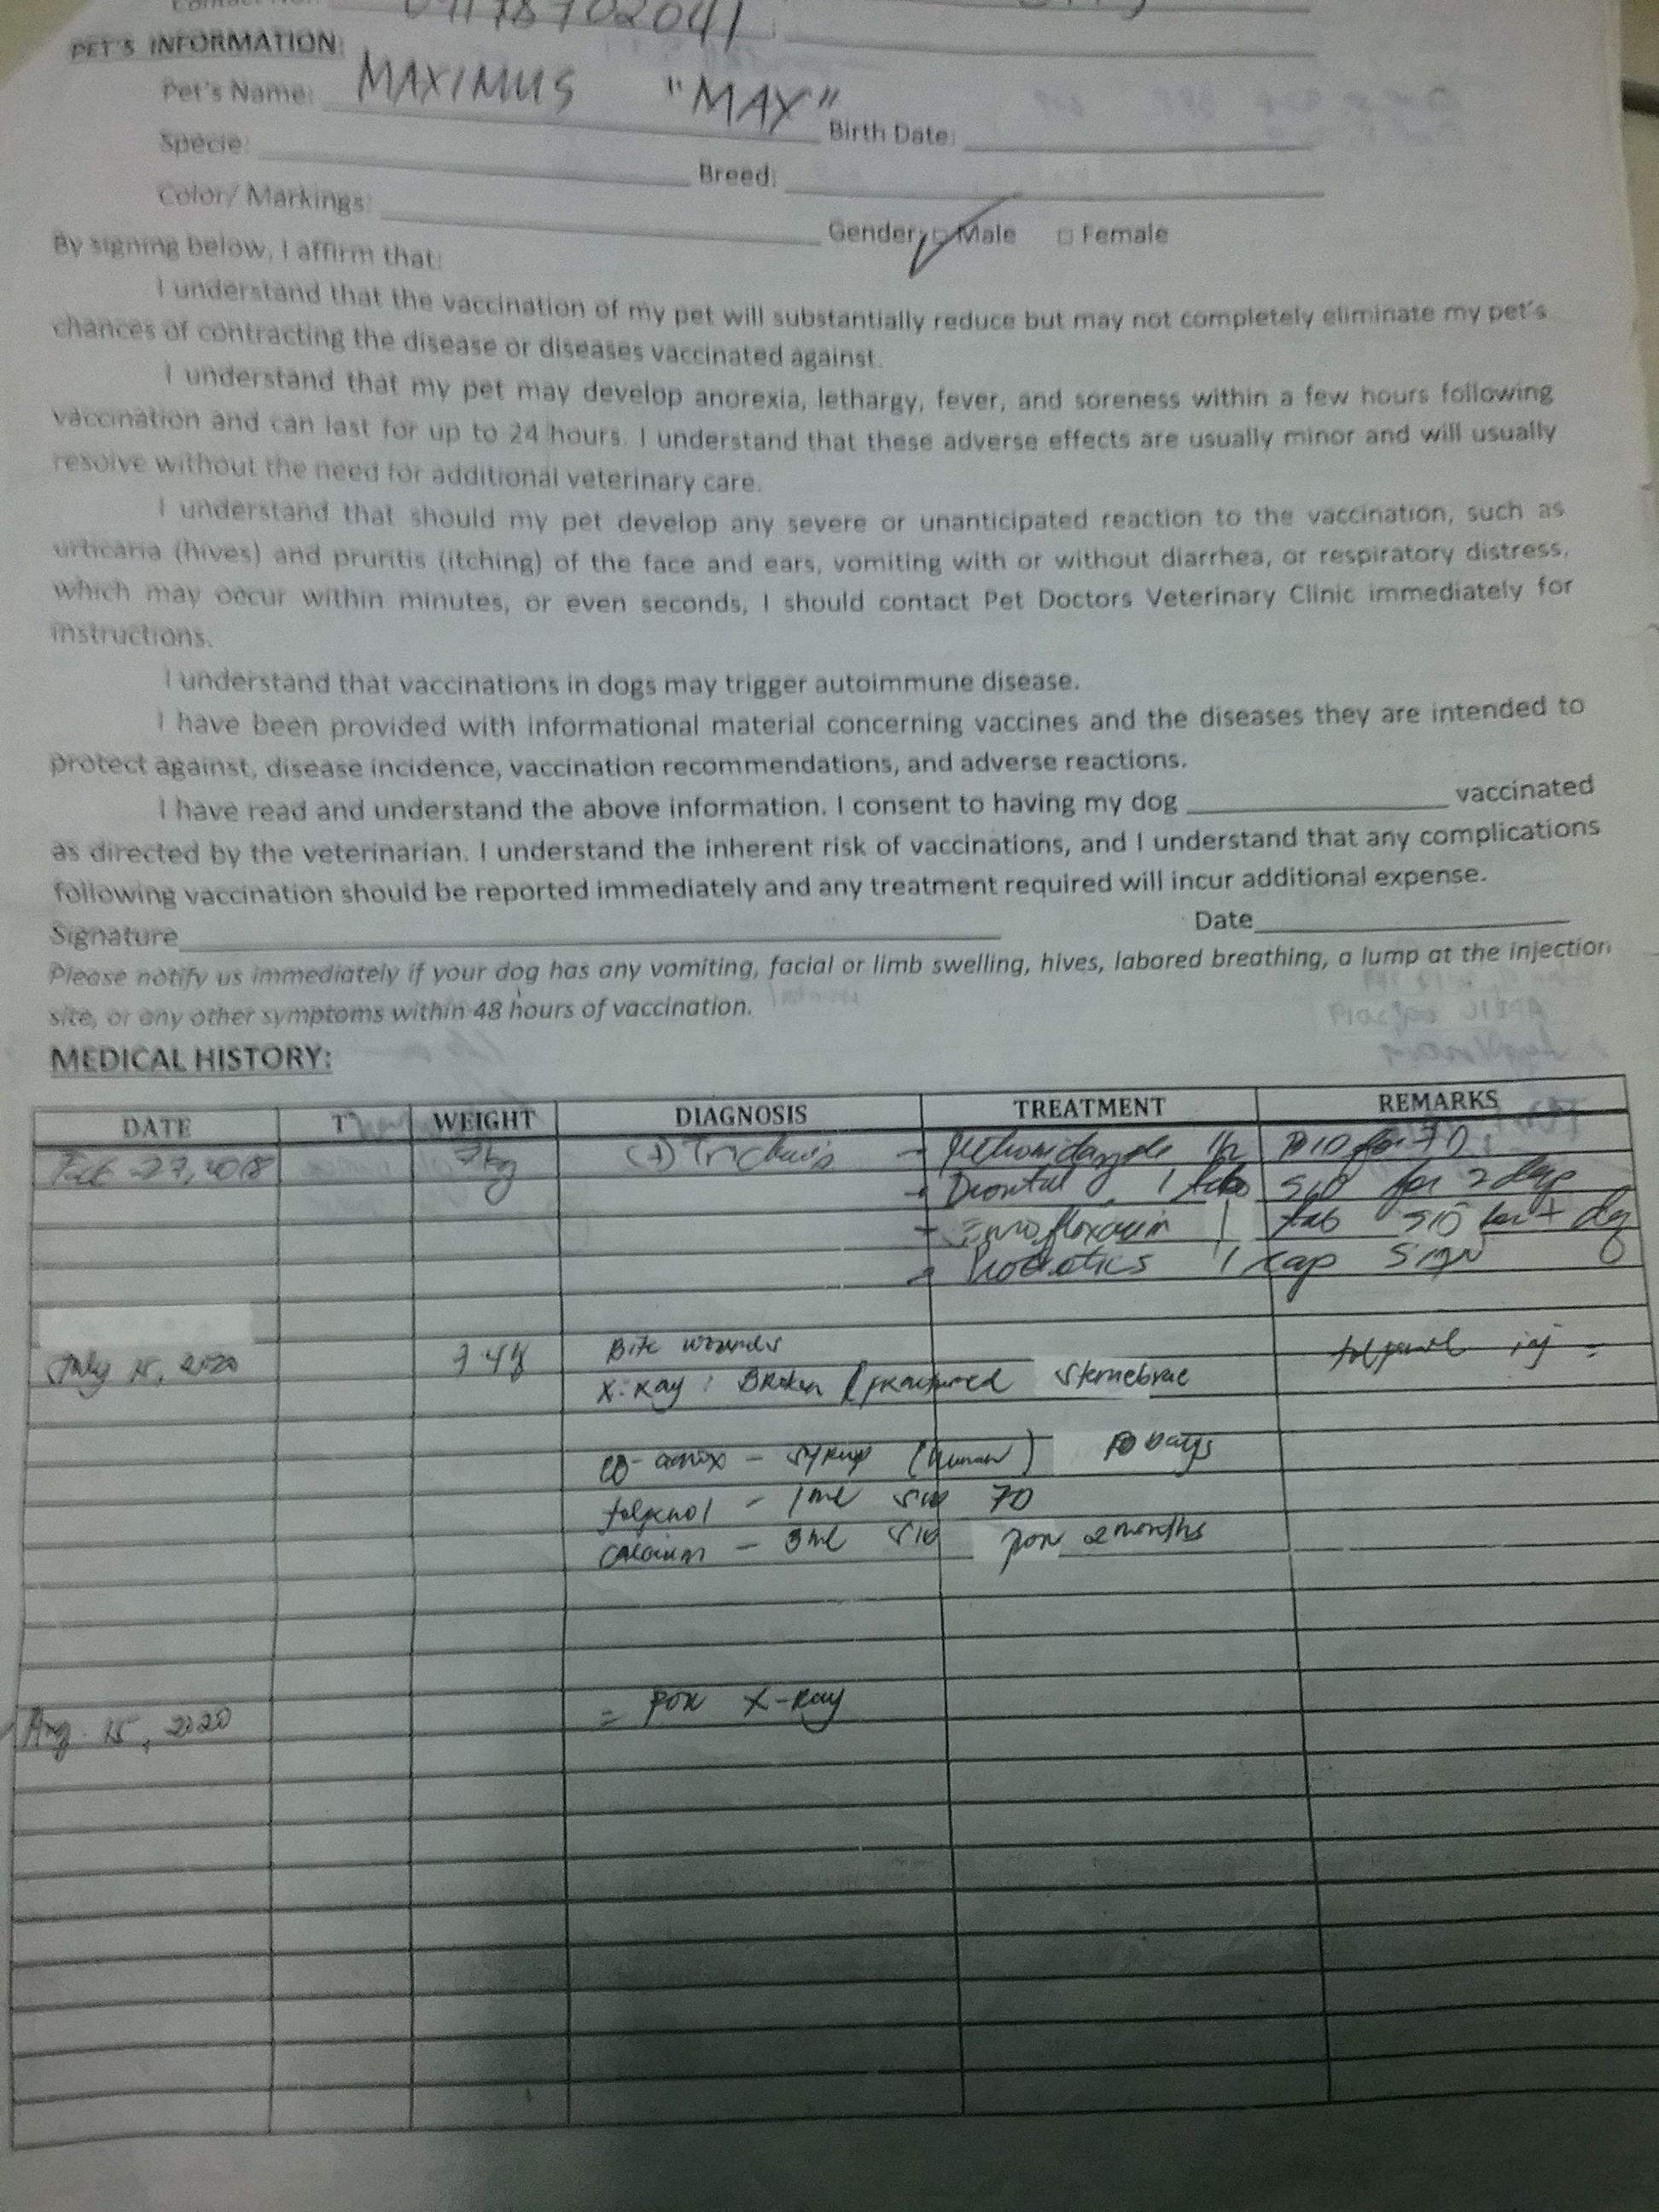 09178702041
PET'S INFORMATION:
Pet's Name: MAXIMUS "MAX"
Birth Date:
Specie:
Breed:
Color/ Markings:
Gender: □ Male □ Female
By signing below, I affirm that:
I understand that the vaccination of my pet will substantially reduce but may not completely eliminate my pet's
chances of contracting the disease or diseases vaccinated against.
I understand that my pet may develop anorexia, lethargy, fever, and soreness within a few hours following
vaccination and can last for up to 24 hours. I understand that these adverse effects are usually minor and will usually
resolve without the need for additional veterinary care.
I understand that should my pet develop any severe or unanticipated reaction to the vaccination, such as
urticaria (hives) and pruritis (itching) of the face and ears, vomiting with or without diarrhea, or respiratory distress,
which may occur within minutes, or even seconds, I should contact Pet Doctors Veterinary Clinic immediately for
instructions.
I understand that vaccinations in dogs may trigger autoimmune disease.
I have been provided with informational material concerning vaccines and the diseases they are intended to
protect against, disease incidence, vaccination recommendations, and adverse reactions.
I have read and understand the above information. I consent to having my dog ____ vaccinated
as directed by the veterinarian. I understand the inherent risk of vaccinations, and I understand that any complications
following vaccination should be reported immediately and any treatment required will incur additional expense.
Signature Date
Please notify us immediately if your dog has any vomiting, facial or limb swelling, hives, labored breathing, a lump at the injection
site, or any other symptoms within 48 hours of vaccination.
MEDICAL HISTORY:
DATE T° WEIGHT DIAGNOSIS TREATMENT REMARKS
27, 2018 7kg (+) - Metronidazole BID for 7D
- Drontal 1 tab SID for 2 days
- Enrofloxacin 1 tab SID for 7 days
- Probiotics 1 cap
July 15, 2020 Bite wounds tolfenol inj =
X-Ray: Broken / fractured sternebrae
co-amox - syrup (human) 10 days
tolfenol - 1ml SID 7D
calcium - 3ml SID for 2 months
Aug. 15, 2020 = for X-Ray